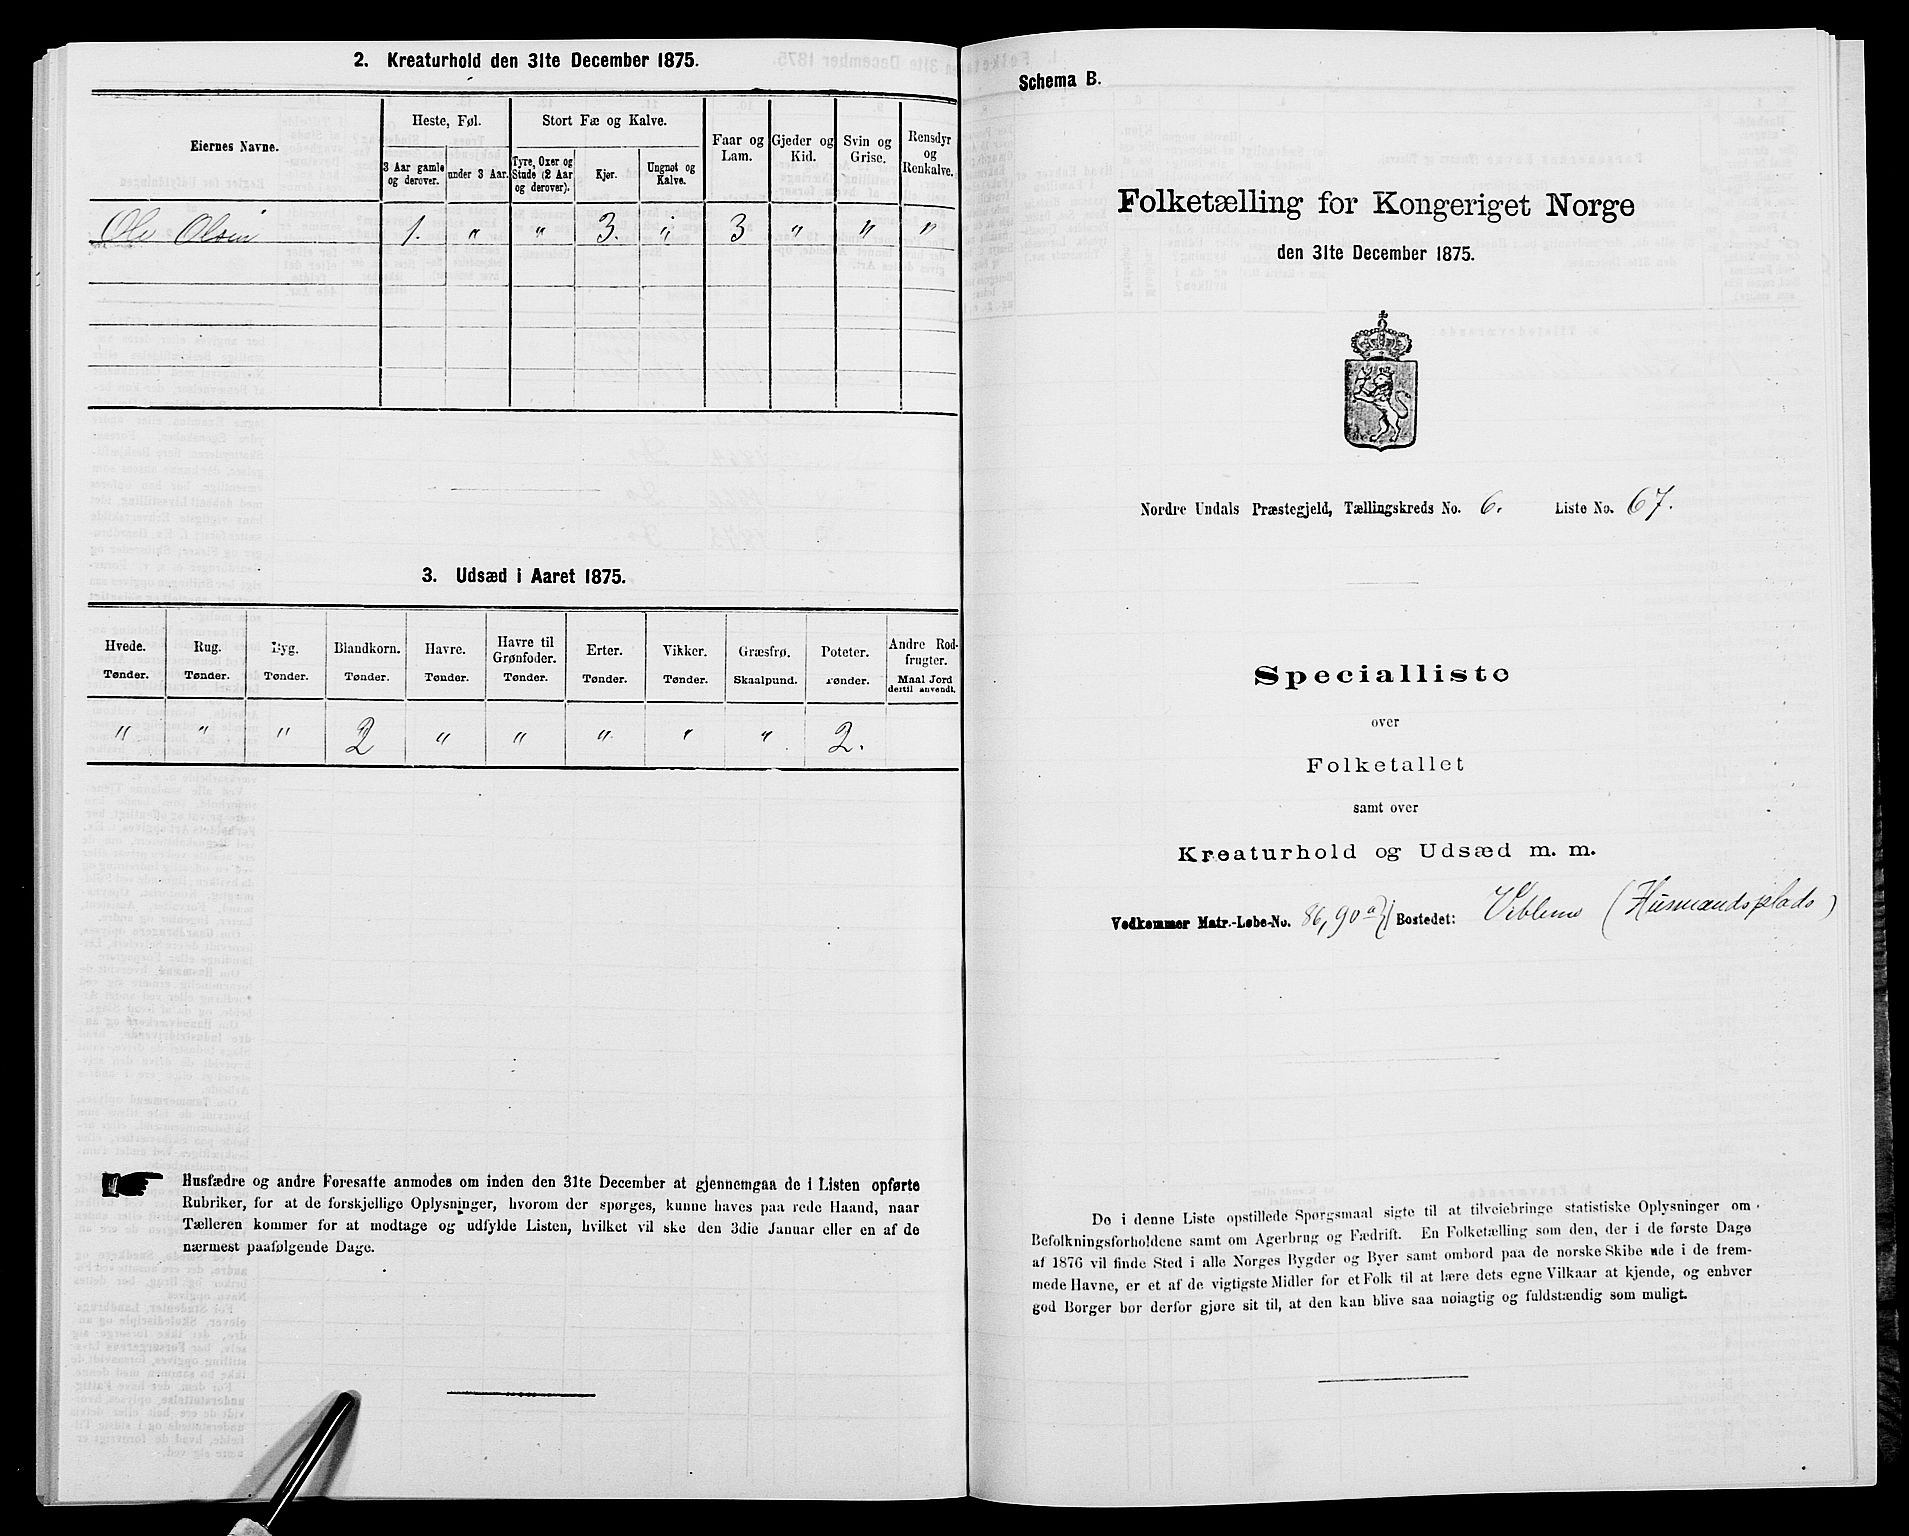 2. Kreaturhold den 31te December 1875.
Eiernes Navne.
Heste, Føl.
Stort Fæ og Kalve.
Faar og Lam.
Gjeder og Kid.
Svin og Grise.
Rensdyr og Renkalve.
3 Aar gamle og derover.
under 3 Aar.
Tyre, Oxer og Stude (2 Aar og derover).
Kjør.
Ungnøt og Kalve.
Ole Olsen 1. " " 3. " 3 " " "
3. Udsæd i Aaret 1875.
Hvede. Rug. Byg. Blandkorn. Havre. Havre til Grønfoder. Erter. Vikker. Græsfrø. Poteter. Andre Rodfrugter.
Tønder. Tønder. Tønder. Tønder. Tønder. Tønder. Tønder. Tønder. Skaalpund. Tønder. Maal Jord dertil anvendt.
" " " 2 " " " " " 2.
Husfædre og andre Foresatte anmodes om inden den 31te December at gjennemgaa de i Listen opførte
Rubriker, for at de forskjellige Oplysninger, hvorom der spørges, kunne haves paa rede Haand, naar
Tælleren kommer for at modtage og udfylde Listen, hvilket vil ske den 3die Januar eller en af de
nærmest paafølgende Dage.
Schema B.
Folketælling for Kongeriget Norge
den 31te December 1875.
Nordre Undals Præstegjeld, Tællingskreds No. 6. Liste No. 67.
Specialliste
over
Folketallet
samt over
Kreaturhold og Udsæd m. m.
Vedkommer Matr.-Løbe-No. 86, 90 a Bostedet: (Husmandsplads)
De i denne Liste opstillede Spørgsmaal sigte til at tilveiebringe statistiske Oplysninger om
Befolkningsforholdene samt om Agerbrug og Fædrift. En Folketælling som den, der i de første Dage
af 1876 vil finde Sted i alle Norges Bygder og Byer samt ombord paa de norske Skibe ude i de frem-
mede Havne, er et af de vigtigste Midler for et Folk til at lære dets egne Vilkaar at kjende, og enhver
god Borger bør derfor gjøre sit til, at den kan blive saa nøiagtig og fuldstændig som muligt.